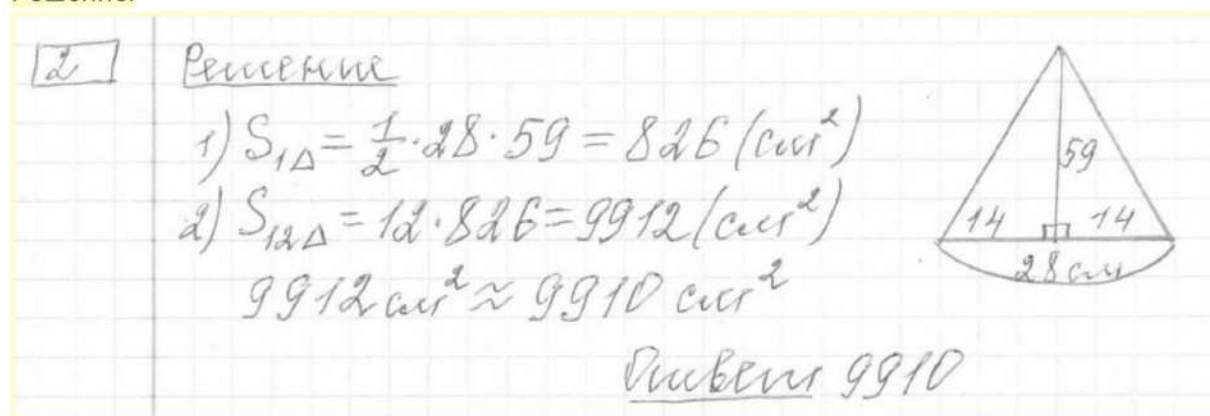 2 Решение
1) S₁△ = 1/2 · 28 · 59 = 826 (см²)
2) S₁₂△ = 12 · 826 = 9912 (см²)
9912 см² ≈ 9910 см²
Ответ 9910
59
14 14
28 см